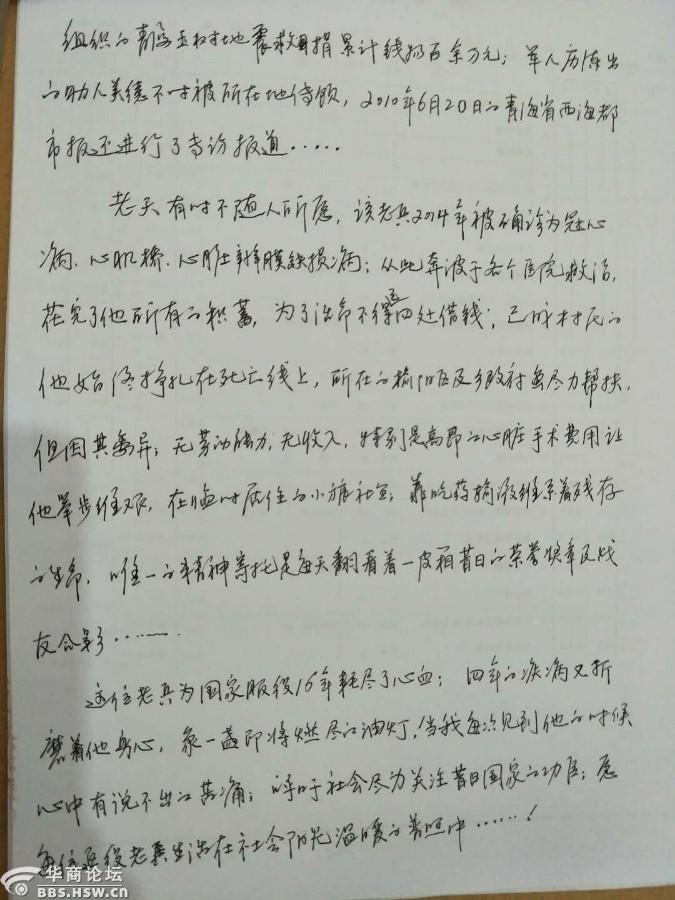 组织的青海玉树地震救国捐累计钱物百余万元；军人历练出
的助人美德不时被所在地传颂，2010年6月20日的青海省西海都
市报还进行了专访报道.....
老天有时不随人所愿，该老兵2014年被确诊为冠心
病、心肌桥、心脏瓣膜缺损病；从此奔波于各个医院救治，
花完了他所有的积蓄，为了活命不得已四处借钱；已成村民的
他始终挣扎在死亡线上，所在的榆阳区及乡政村虽尽力帮扶，
但因其离异；无劳动能力，无收入，特别是高昂的心脏手术费用让
他举步维艰，在临时居住的小旅社里；靠吃药输液维系着残存
的生命，唯一的精神寄托是每天翻看着一皮箱昔日的荣誉奖章及战
友合影.......
这位老兵为国家服役16年耗尽了心血；四年的疾病又折
磨着他身心，象一盏即将燃尽的油灯，当我每次见到他的时候
心中有说不出的苦痛；呼吁社会尽力关注昔日国家的功臣；愿
每位退役老兵生活在社会阳光温暖的普照中......！
华商论坛
BBS.HSW.CN